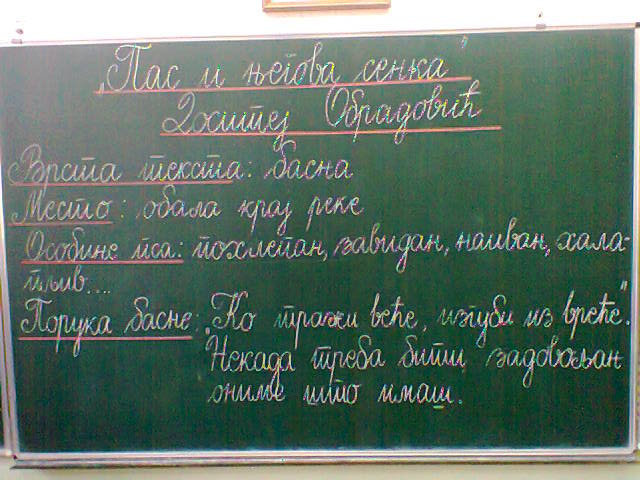 „Пас и његова сенка“
Доситеј Обрадовић
Врста текста: басна
Место: обала крај реке
Особине пса: похлепан, завидан, наиван, хала-
пљив....
Порука басне: „Ко тражи веће, изгуби из вреће“.
Некада треба бити задовољан
ониме што имаш.